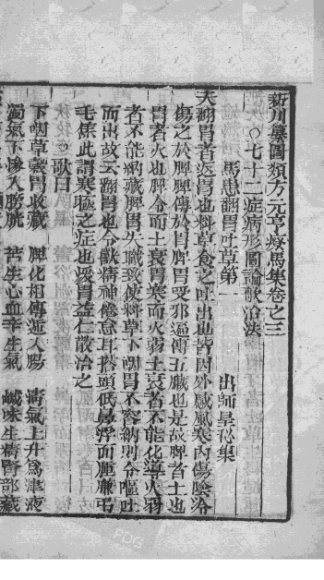 新刋纂圖類方元亨療馬集卷之三
○七十二症病形圖論歌治法
馬患翻胃吐草第一　出師皇秘集
夫翻胃者返胃也料草食之吐出也皆因外感風寒内傷陰冷
傷之於脾脾傳於胃脾胃受邪遍傳五臟也是故脾者土也
胃者火也脾冷而土衰胃寒而火弱土衰者不能化導火弱
者不能納藏脾胃失職致使料草下咽胃不容納則令嘔吐
而出故云翻胃也令獸精神倦怠耳搭頭低浮而
毛焦此謂寒極之症也煖胃益仁散治之
歌曰
下咽草榖胃收藏　脾化相傳遞入腸　清氣上升爲津液
濁氣下滲入膀胱　苦生心血辛生氣　鹹味生精腎部藏